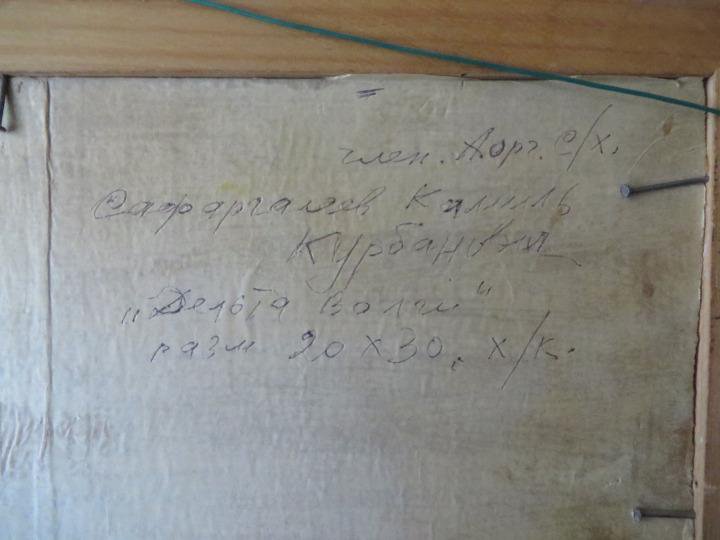 член. Аорг. С/Х.
Сафаргалеев Камиль
Курбанович
"Дельта Волги"
разм 20 х 30, х/к.